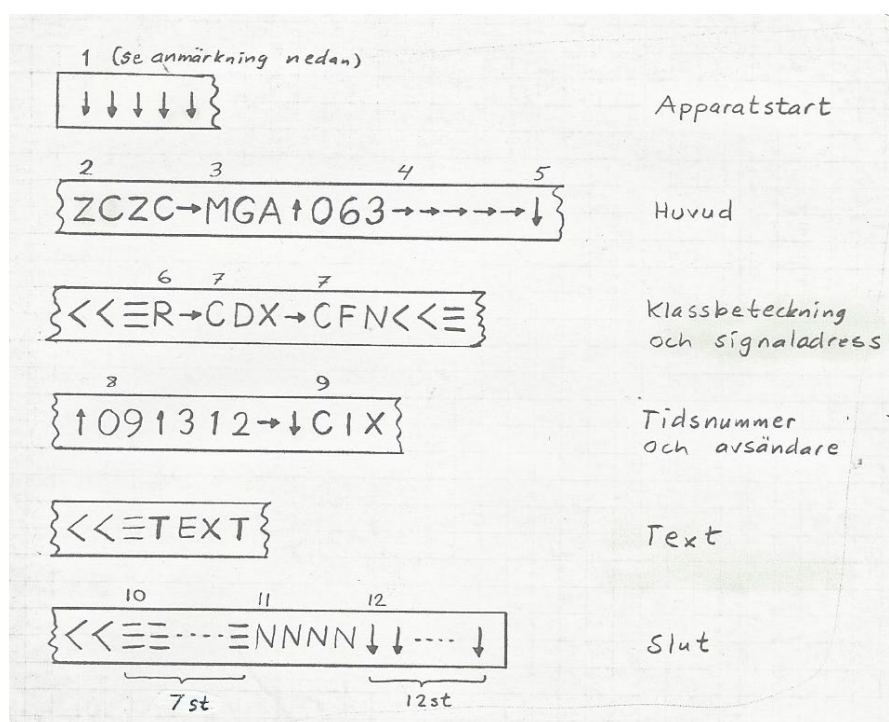 1 (se anmärkning nedan)
↓ ↓ ↓ ↓ ↓
Apparatstart
2 3 4 5
ZCZC→MGA↑063→→→→→↓
Huvud
6 7 7
<<≡R→CDX→CFN<<≡
Klassbeteckning
och signaladress
8 9
↑091312→↓CIX
Tidsnummer
och avsändare
<<≡TEXT
Text
10 11 12
<<≡≡----≡NNNN↓↓----↓
Slut
7 st 12 st